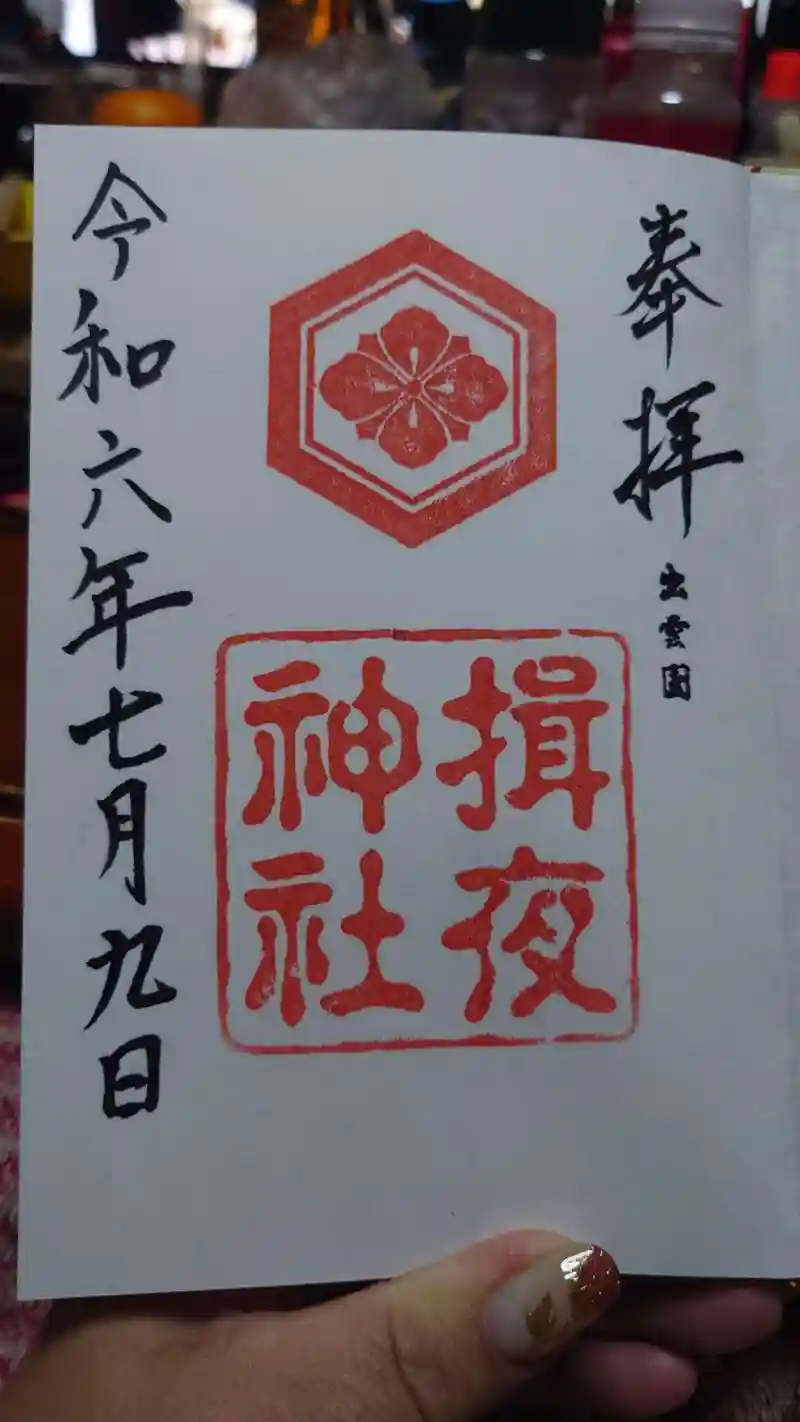 奉拝
出雲國
揖夜
神社
令和六年七月九日